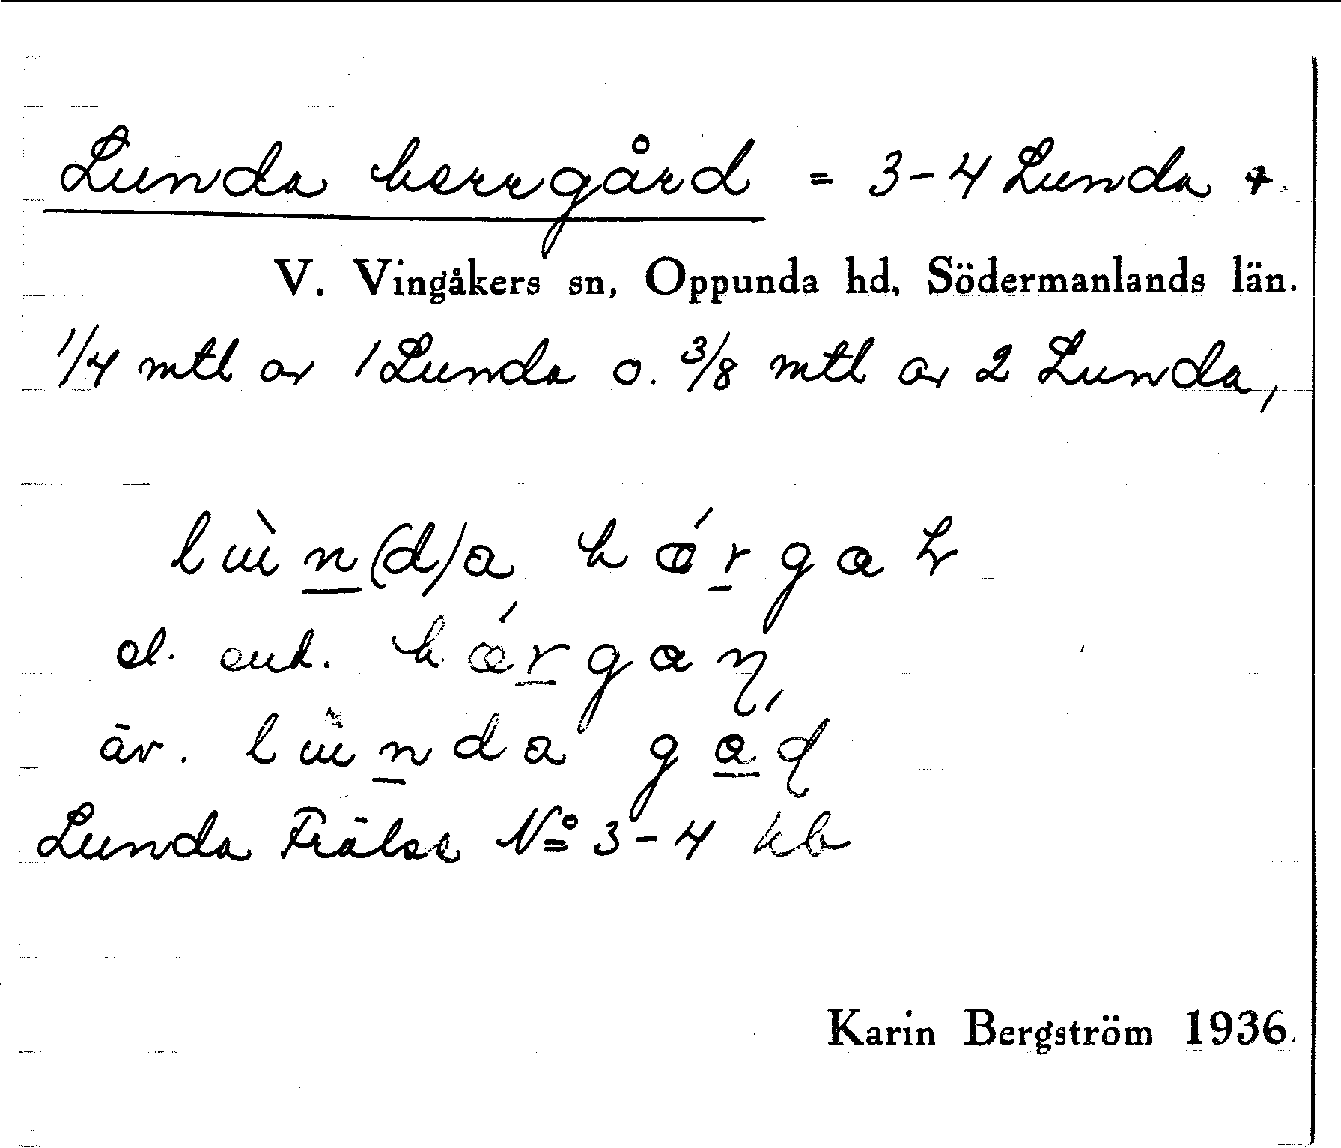 Lunda herrgård = 3-4 Lunda +
V. Vingåkers sn, Oppunda hd, Södermanlands län.
1/4 mtl av 1 Lunda o. 3/8 mtl av 2 Lunda,
el. enk.
äv.
Lunda Frälse No 3-4
Karin Bergström 1936.